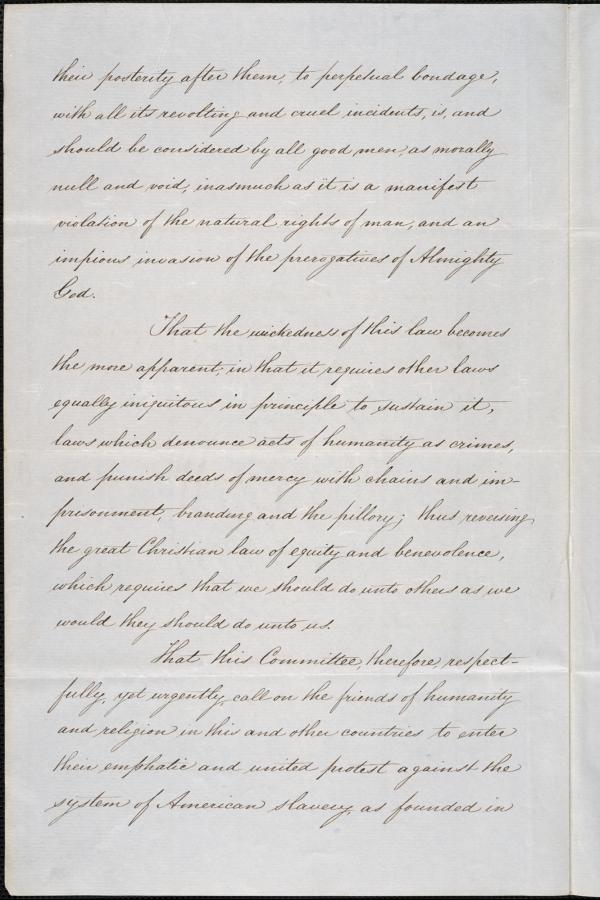 their posterity after them, to perpetual bondage,
with all its revolting and cruel incidents, is, and
should be considered by all good men, as morally
null and void, inasmuch as it is a manifest
violation of the natural rights of man, and an
impious invasion of the prerogatives of Almighty
God.
That the wickedness of this law becomes
the more apparent, in that it requires other laws
equally iniquitous in principle to sustain it,
laws which denounce acts of humanity as crimes,
and punish deeds of mercy with chains and im-
prisonment, branding and the pillory; thus reversing
the great Christian law of equity and benevolence,
which requires that we should do unto others as we
would they should do unto us.
That this Committee, therefore, respect-
fully, yet urgently, call on the friends of humanity
and religion in this and other countries to enter
their emphatic and united protest against the
system of American slavery, as founded in